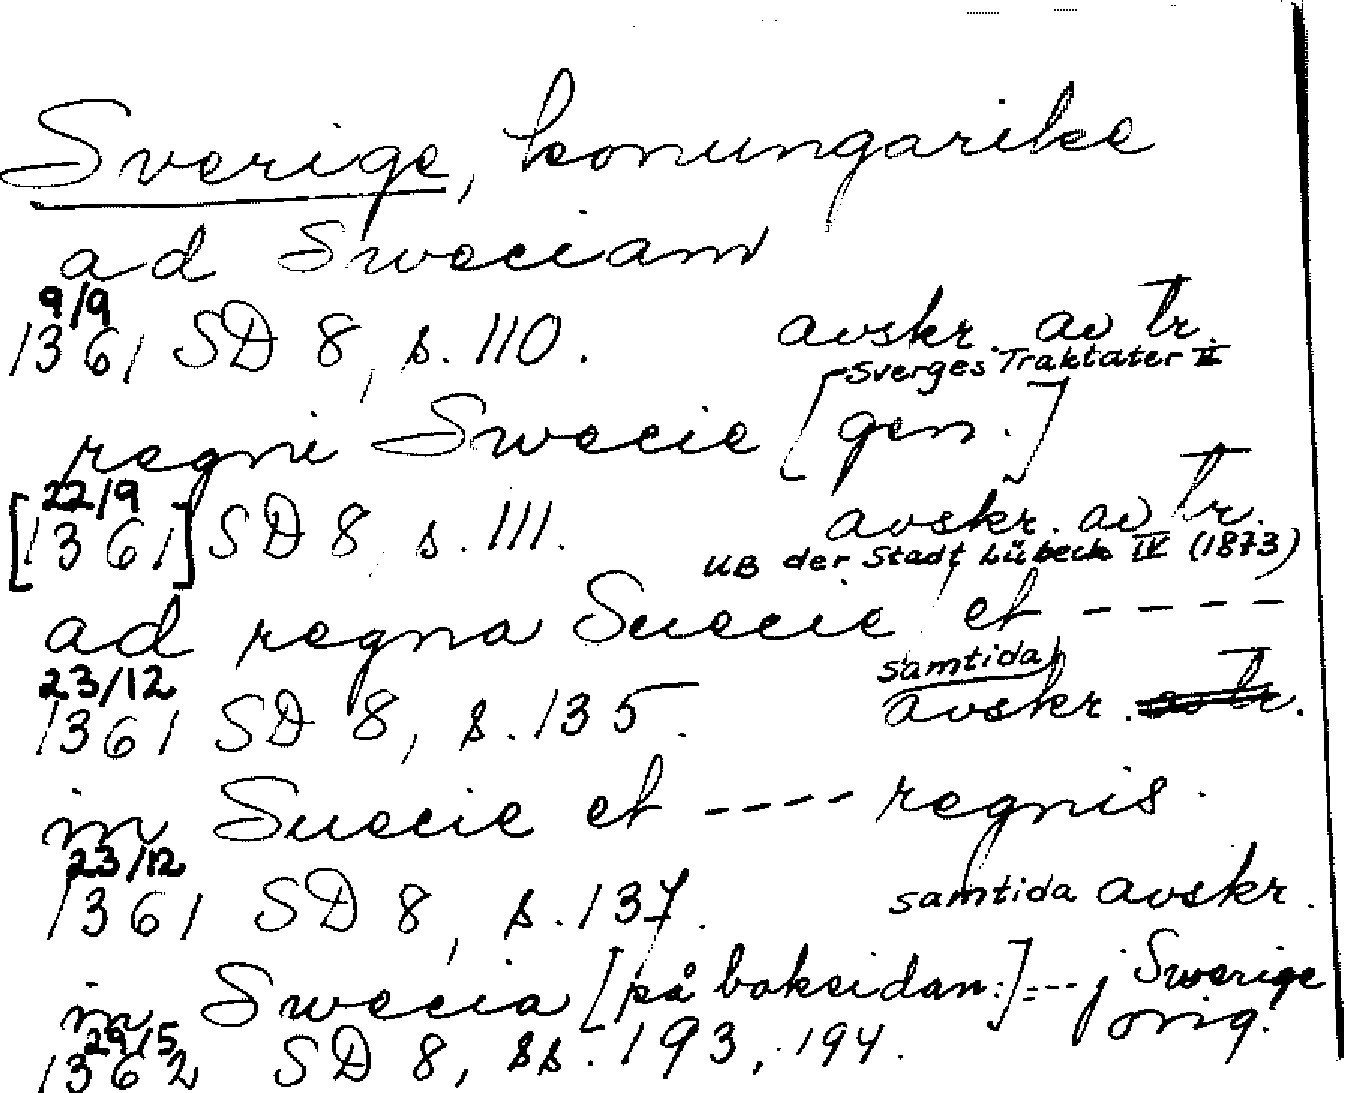 Sverige, konungarike
ad Sweciam
9/9
1361 SD 8, s. 110. avskr. av tr.
Sverges Traktater II
regni Swecie [gen.]
22/9
[1361] SD 8 s. 111. avskr. av tr.
UB der Stadt Lübeck IV (1873)
ad regna Suecie et -----
23/12 samtida
1361 SD 8, s. 135. avskr. av tr.
in Suecie et ---- regnis.
23/12
1361 SD 8, s. 137. samtida avskr.
in Swecia [på baksidan:]=-- j Swerige
29/5 orig.
1362 SD 8, ss. 193, 194.